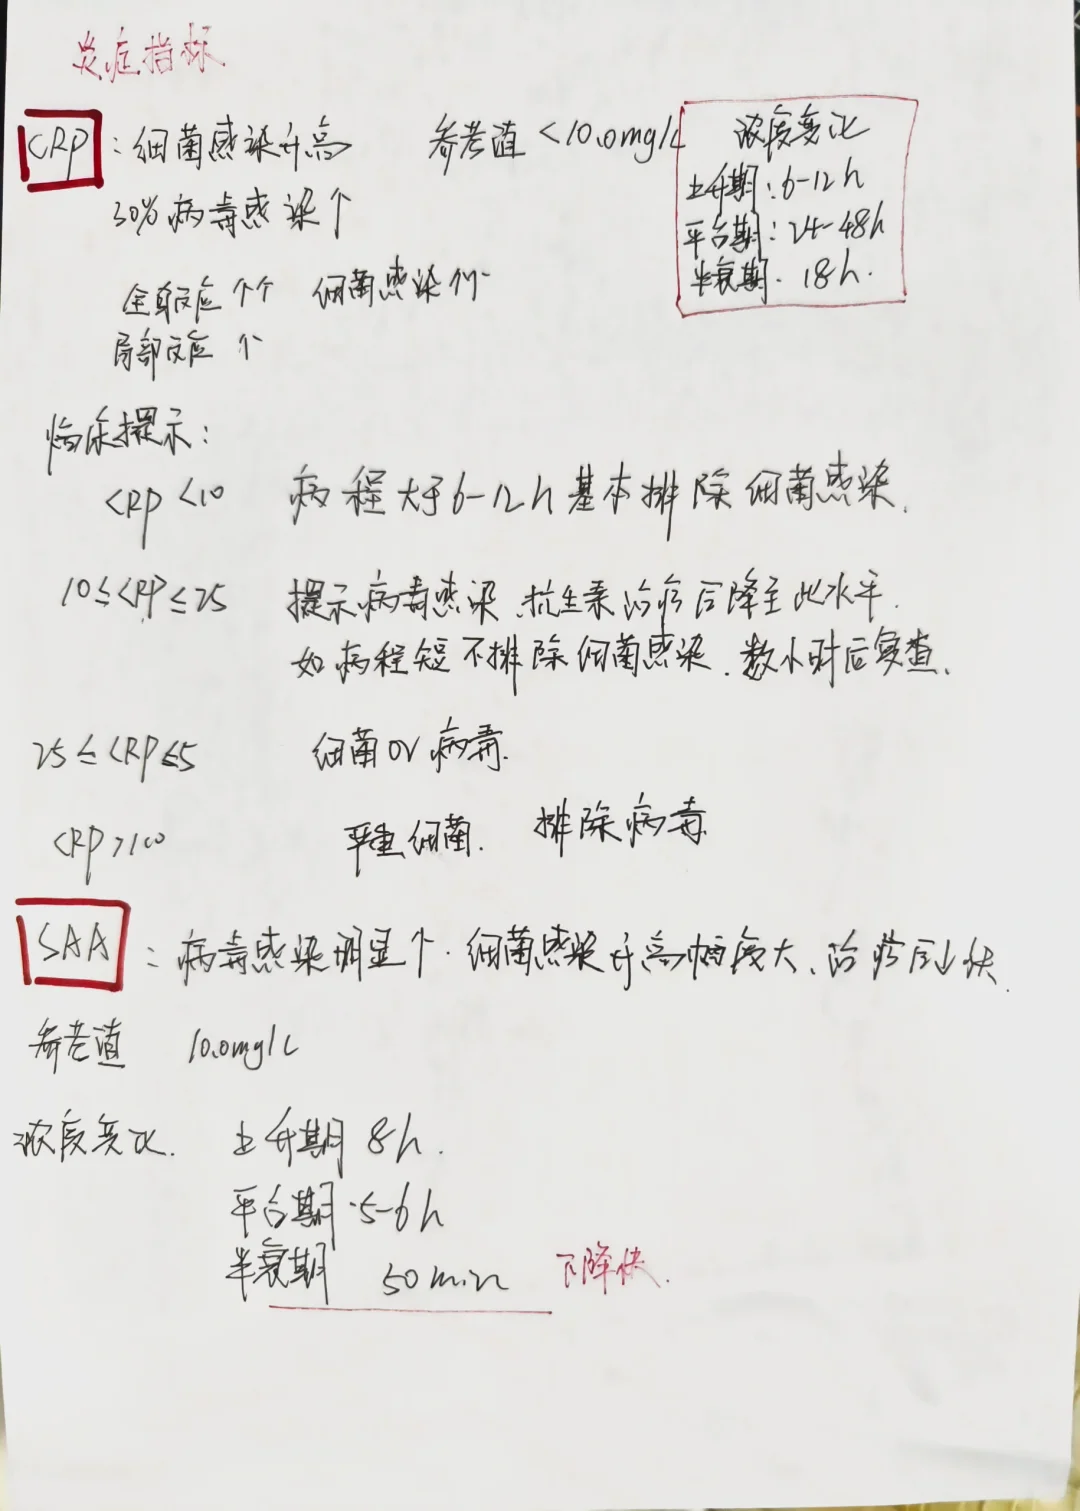 炎症指标
CRP：细菌感染升高 参考值 <10.0mg/L
30%病毒感染↑
全身反应↑↑ 细菌感染↑↑
局部反应 ↑
浓度变化
上升期：6-12h
平台期：24-48h
半衰期. 18h.
临床提示：
CRP<10 病程大于6-12h基本排除细菌感染.
10≤CRP≤25 提示病毒感染.抗生素治疗后降至此水平.
如病程短不排除细菌感染.数小时后复查.
25≤CRP≤5 细菌or病毒.
CRP>100 严重细菌. 排除病毒
SAA：病毒感染明显↑.细菌感染升高幅度大、治疗后↓快.
参考值 10.0mg/L
浓度变化. 上升期 8h.
平台期.5-6h
半衰期 50min 下降快.